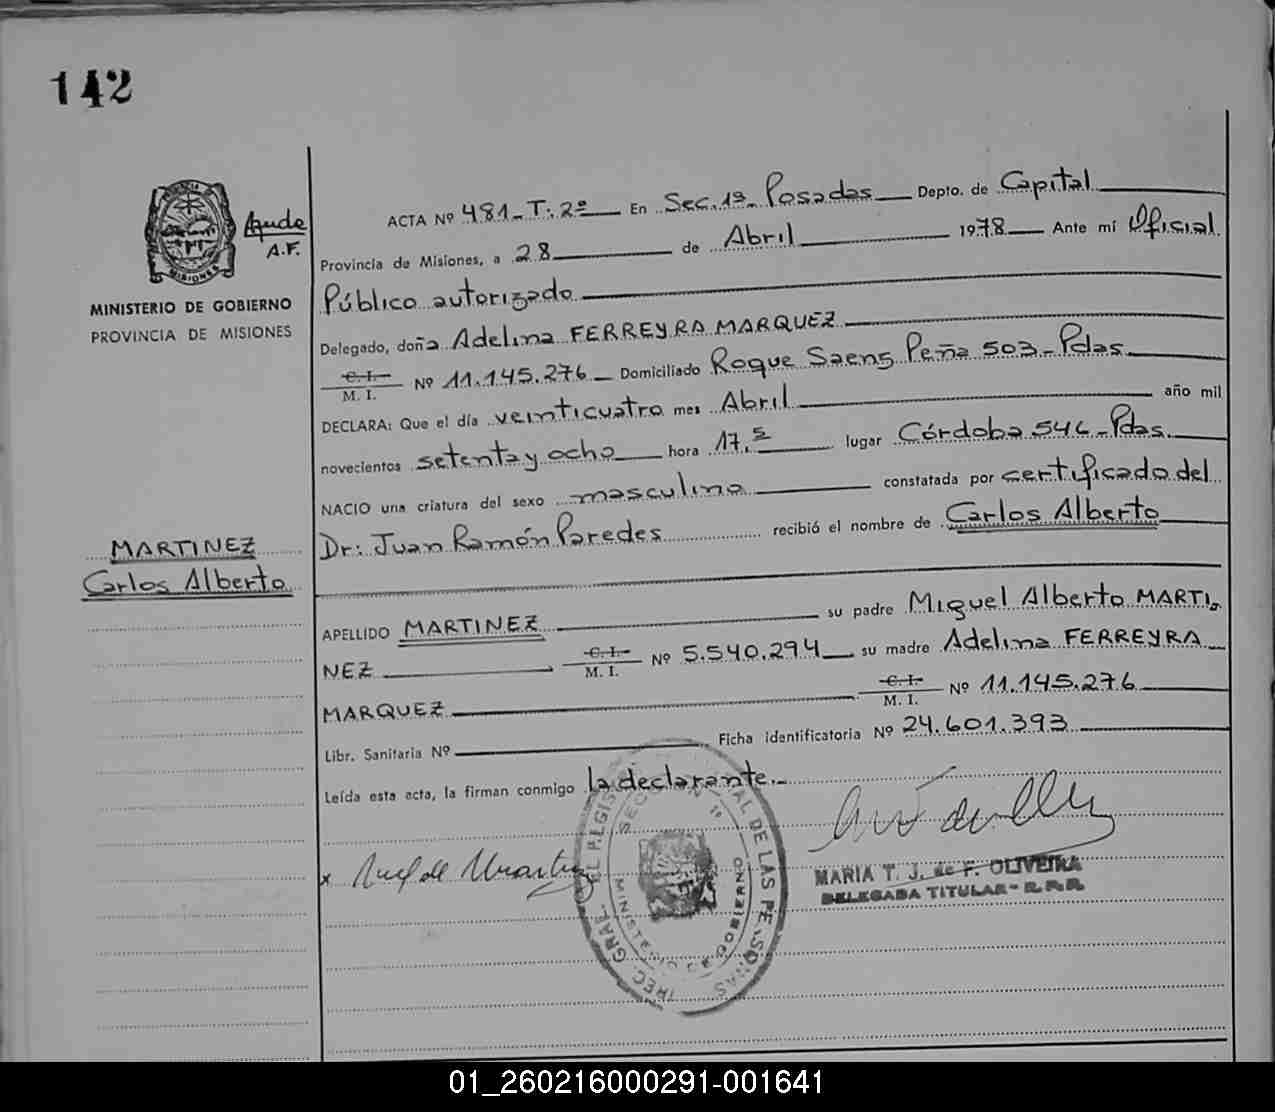 142
Ayude
A.F.
MINISTERIO DE GOBIERNO
PROVINCIA DE MISIONES
MARTINEZ
Carlos Alberto
ACTA Nº 481-T:2º En Sec. 1ª Posadas Depto. de Capital
Provincia de Misiones, a 28 de Abril 1978 Ante mí Oficial
Público autorizado
Delegado, doña Adelina FERREYRA MARQUEZ
C.I. M. I. Nº 11.145.276 Domiciliado Roque Saens Peña 503-Pdas.
DECLARA: Que el día veinticuatro mes Abril año mil
novecientos setenta y ocho hora 17,5 lugar Córdoba 546-Pdas.
NACIO una criatura del sexo masculino constatada por certificado del
Dr: Juan Ramón Paredes recibió el nombre de Carlos Alberto
APELLIDO MARTINEZ su padre Miguel Alberto MARTI
NEZ C.I. M. I. Nº 5.540.294 su madre Adelina FERREYRA
MARQUEZ C.I. M. I. Nº 11.145.276
Libr. Sanitaria Nº Ficha identificatoria Nº 24.601.393
Leída esta acta, la firman conmigo la declarante.-
x
MARIA T. J. de F. OLIVEIRA
DELEGADA TITULAR - R.P.P.
MINISTERIO DE GOBIERNO
01_260216000291-001641